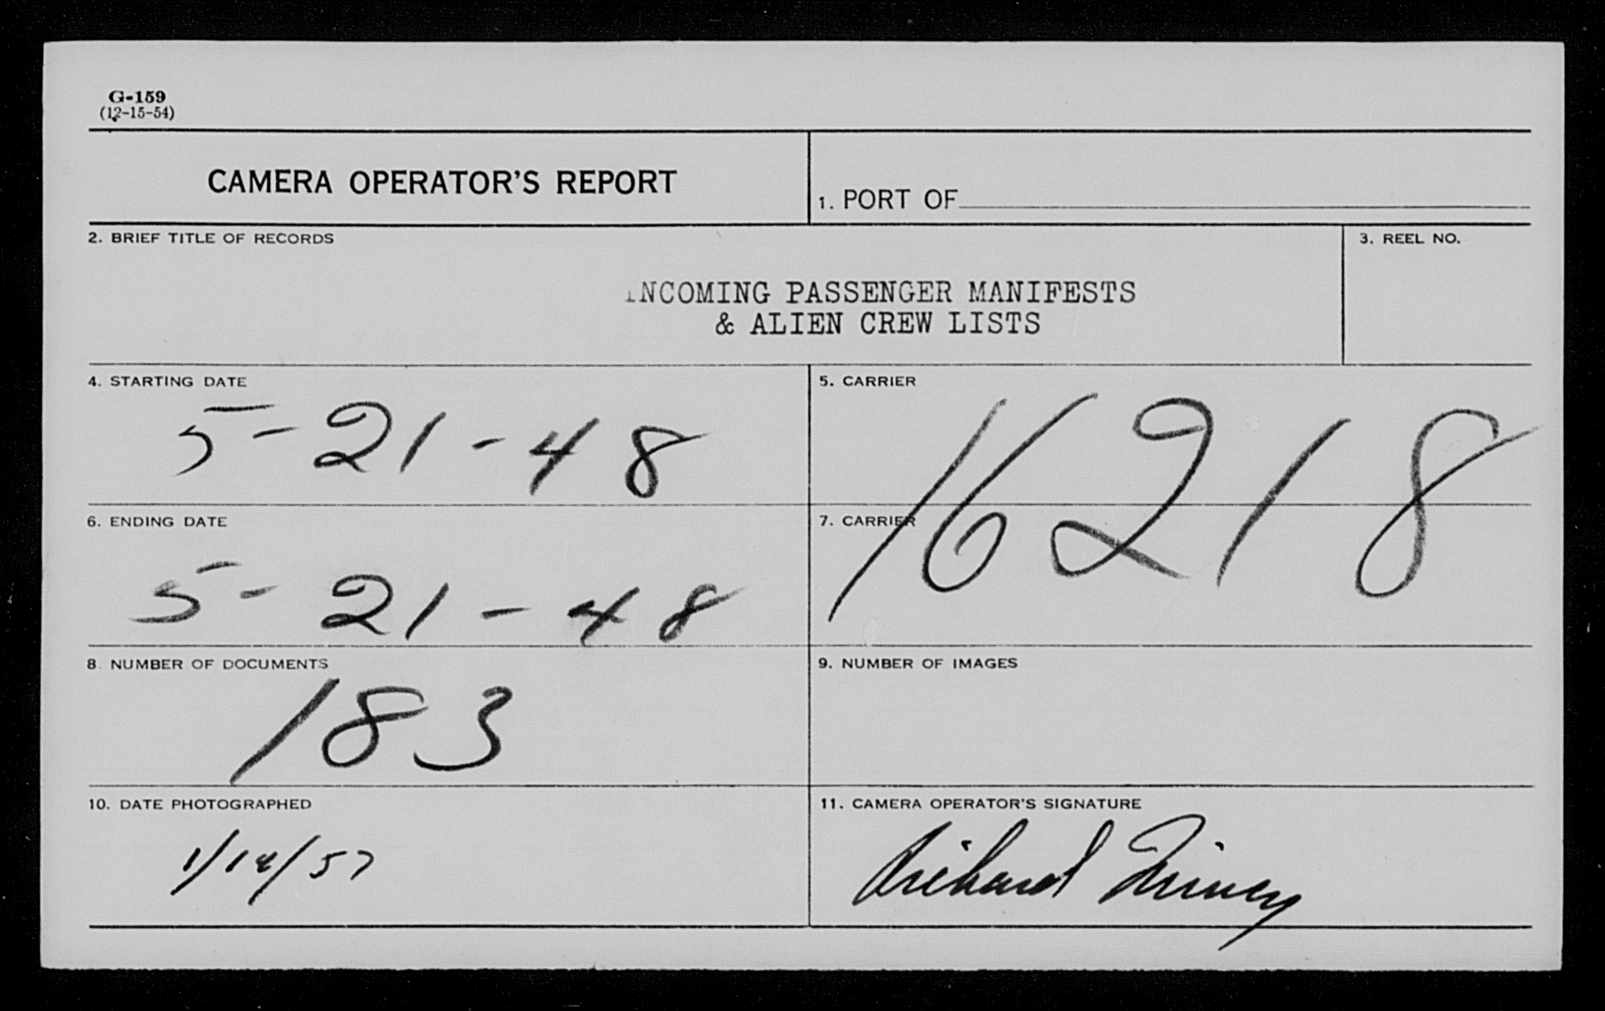 G-159
(12-15-54)
CAMERA OPERATOR'S REPORT
1. PORT OF
2. BRIEF TITLE OF RECORDS
3. REEL NO.
INCOMING PASSENGER MANIFESTS
& ALIEN CREW LISTS
4. STARTING DATE
5-21-48
5. CARRIER
16218
6. ENDING DATE
5-21-48
7. CARRIER
8. NUMBER OF DOCUMENTS
183
9. NUMBER OF IMAGES
10. DATE PHOTOGRAPHED
11. CAMERA OPERATOR'S SIGNATURE
Richard